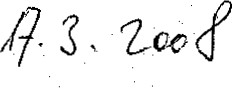 17. 3. 2008